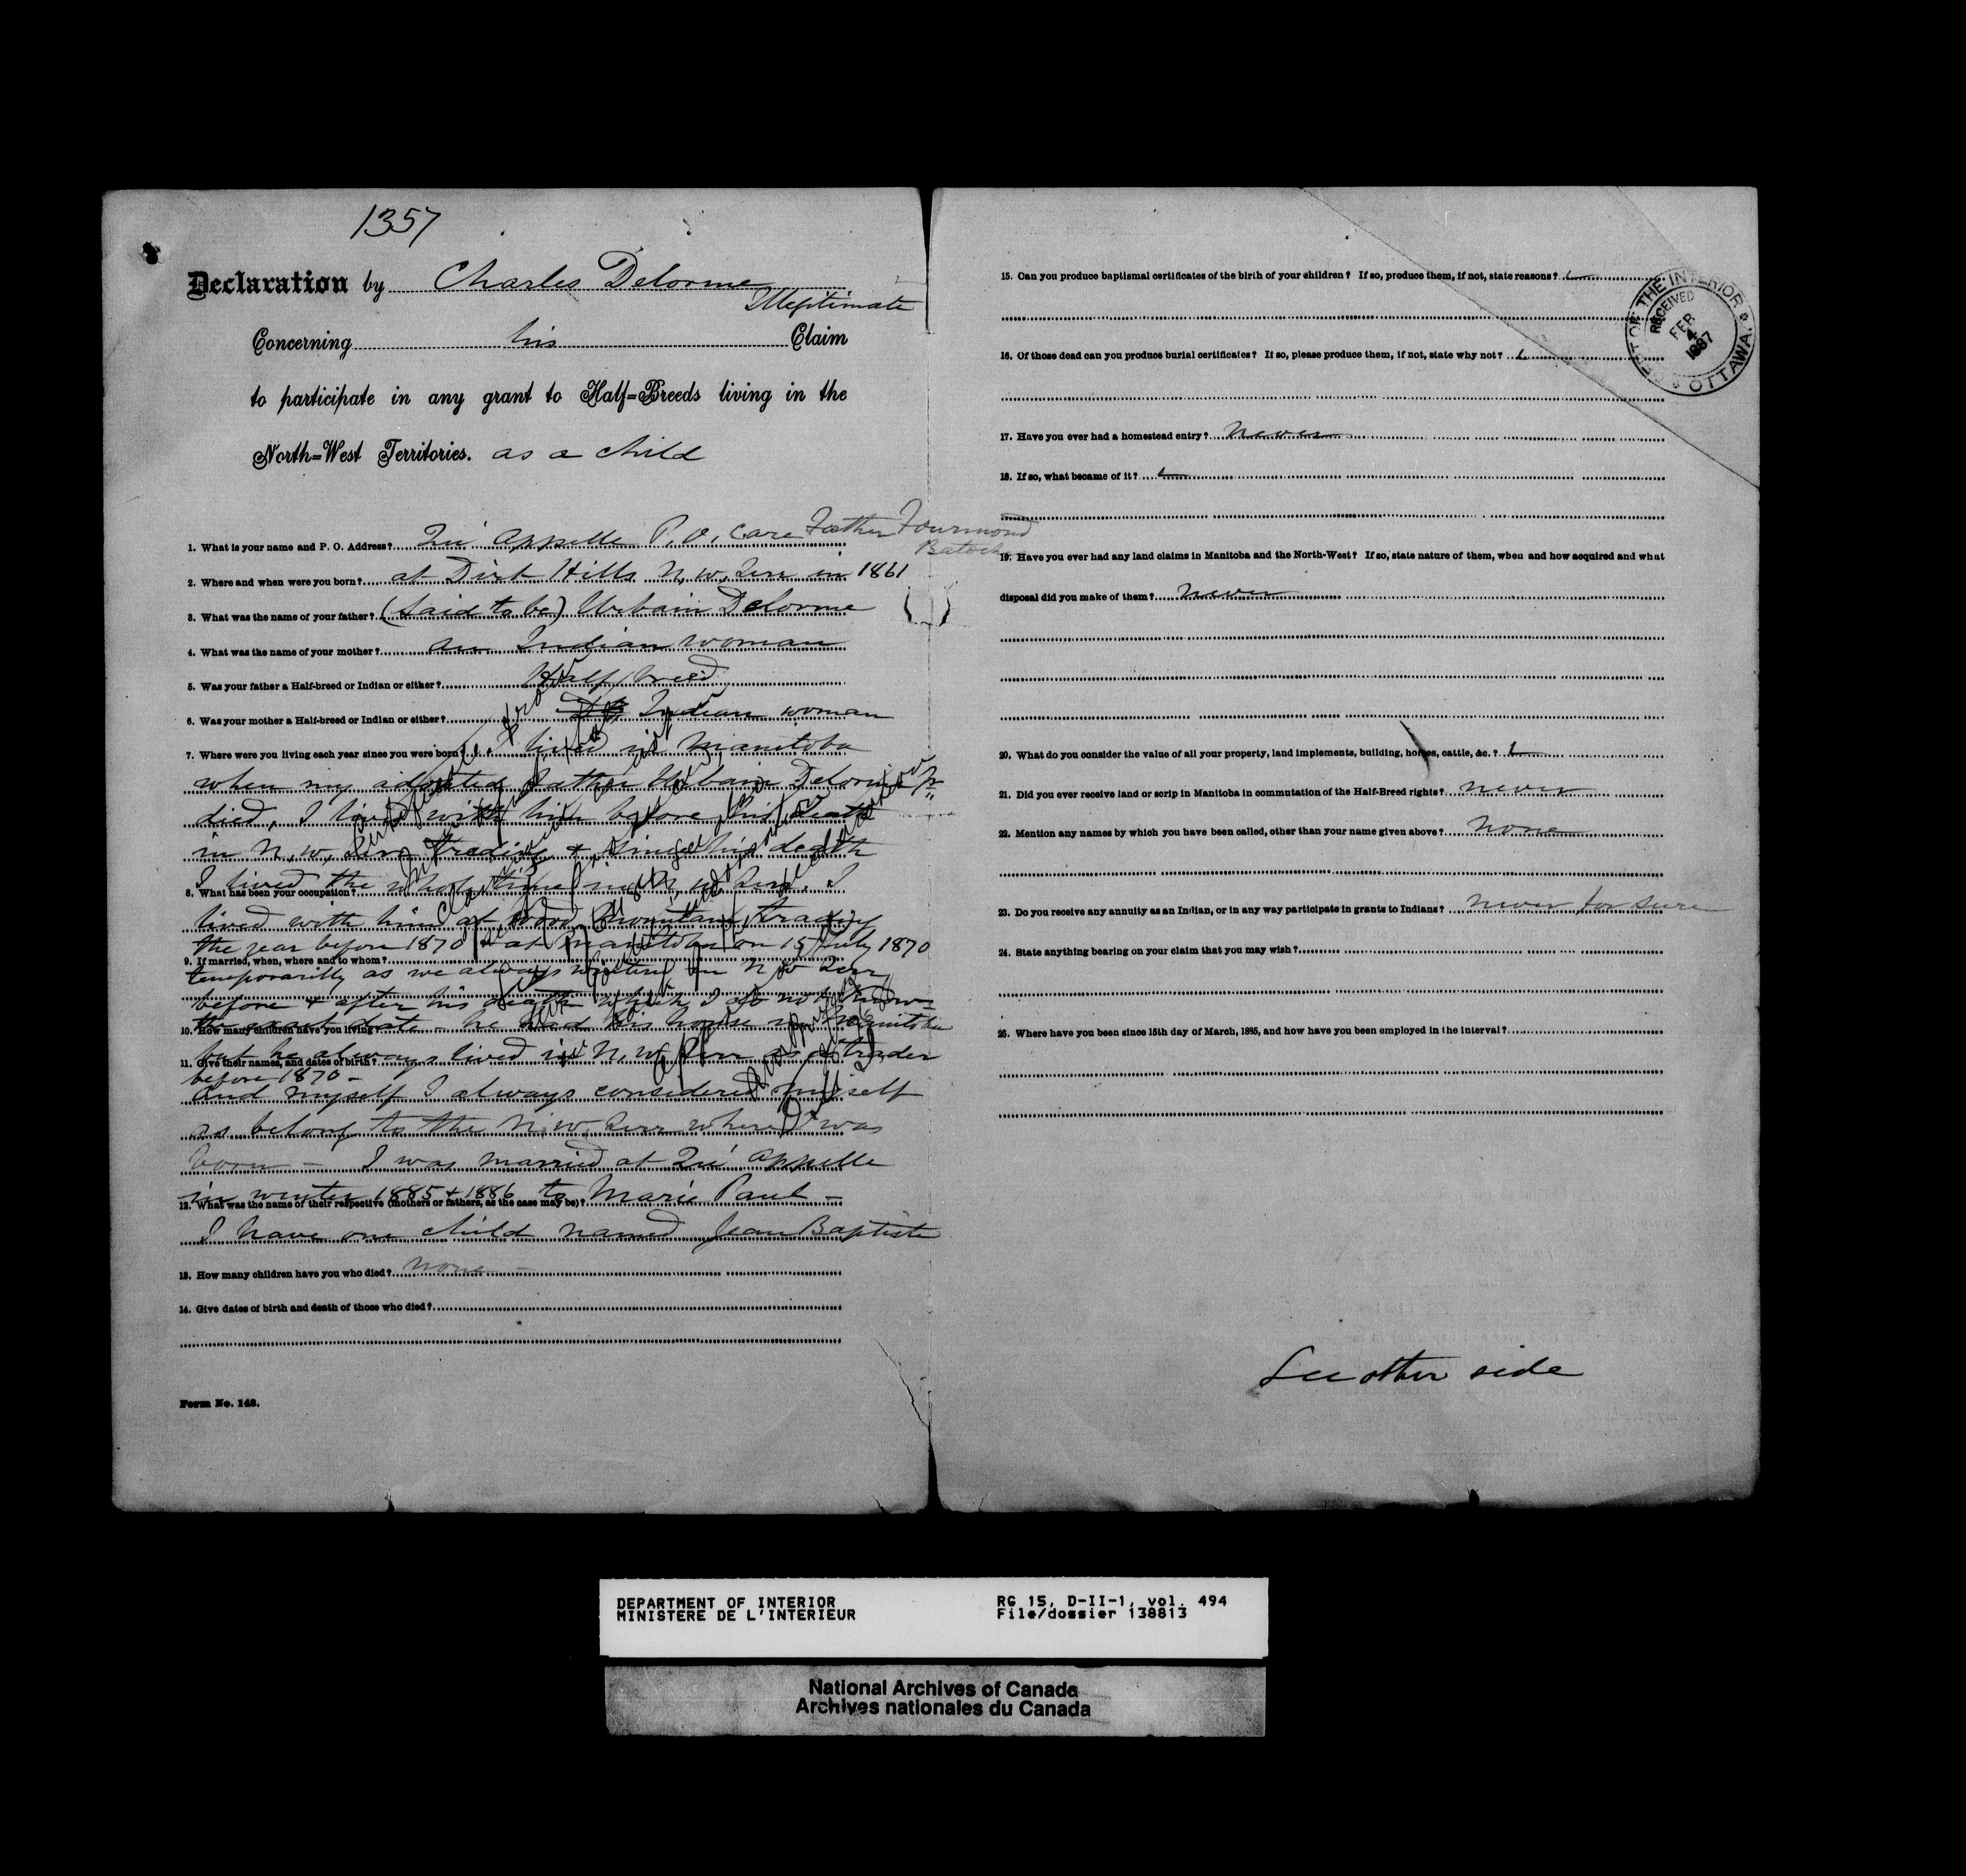 1357
Declaration by Charles Delorme
Illegitimate
Concerning his Claim
to participate in any grant to Half=Breeds living in the
North=West Territories. as a child
1. What is your name and P. O. Address? Qu' Appelle P. O. Care Father Fourmond
Batoche
2. Where and when were you born? at Dirt Hills N. W. Terr in 1861
3. What was the name of your father? (Said to be) Urbain Delorme
4. What was the name of your mother? an Indian woman
5. Was your father a Half-breed or Indian or either? Half breed
6. Was your mother a Half-breed or Indian or either? Indian woman
7. Where were you living each year since you were born? I lived in Manitoba
when my adopted father Urbain Delorme
died, I lived with him before his death
in N. W. Terr trading & since his death
I lived the whole time in N. W. Terr. I
8. What has been your occupation?
lived with him at Wood Mountain trading
the year before 1870 & at Manitoba on 15 July 1870
9. If married, when, where and to whom?
temporarily as we always wintered in N W Terr
before & after his death which I do not know
the exact date - he had his house in Manitoba
10. How many children have you living?
but he always lived in N. W. Terr as a trader
11. Give their names, and dates of birth?
before 1870 -
and myself I always considered myself
as belong to the N. W. Terr where I was
born - I was married at Qu' Appelle
in winter 1885 & 1886 to Marie Paul -
12. What was the name of their respective (mothers or fathers, as the case may be)?
I have one child named Jean Baptiste
13. How many children have you who died? none -
14. Give dates of birth and death of those who died?
Form No. 148.
15. Can you produce baptismal certificates of the birth of your children? If so, produce them, if not, state reasons?
DEPT OF THE INTERIOR
RECEIVED
FEB
4
1887
OTTAWA
16. Of those dead can you produce burial certificates? If so, please produce them, if not, state why not?
17. Have you ever had a homestead entry? never
18. If so, what became of it?
19. Have you ever had any land claims in Manitoba and the North-West? If so, state nature of them, when and how acquired and what
disposal did you make of them? never
20. What do you consider the value of all your property, land implements, building, horses, cattle, &c.?
21. Did you ever receive land or scrip in Manitoba in commutation of the Half-Breed rights? never
22. Mention any names by which you have been called, other than your name given above? none
23. Do you receive any annuity as an Indian, or in any way participate in grants to Indians? never for sure
24. State anything bearing on your claim that you may wish?
25. Where have you been since 15th day of March, 1885, and how have you been employed in the interval?
See other side
DEPARTMENT OF INTERIOR
MINISTERE DE L'INTERIEUR
RG 15, D-II-1, vol. 494
File/dossier 138813
National Archives of Canada
Archives nationales du Canada